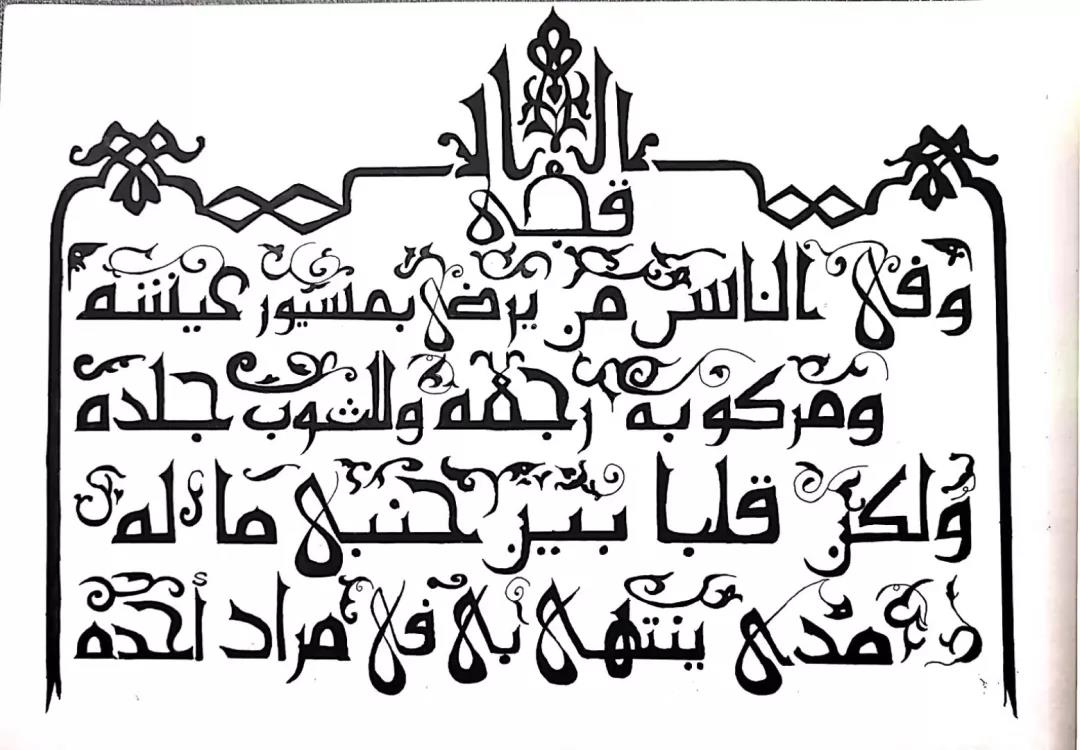 وفي الناس من يرضى بميسور عيشه
ومركوبه رجلاه والثوب جلده
ولكن قلبا بين جنبي ما له
مدى ينتهي بي في مراد أحده